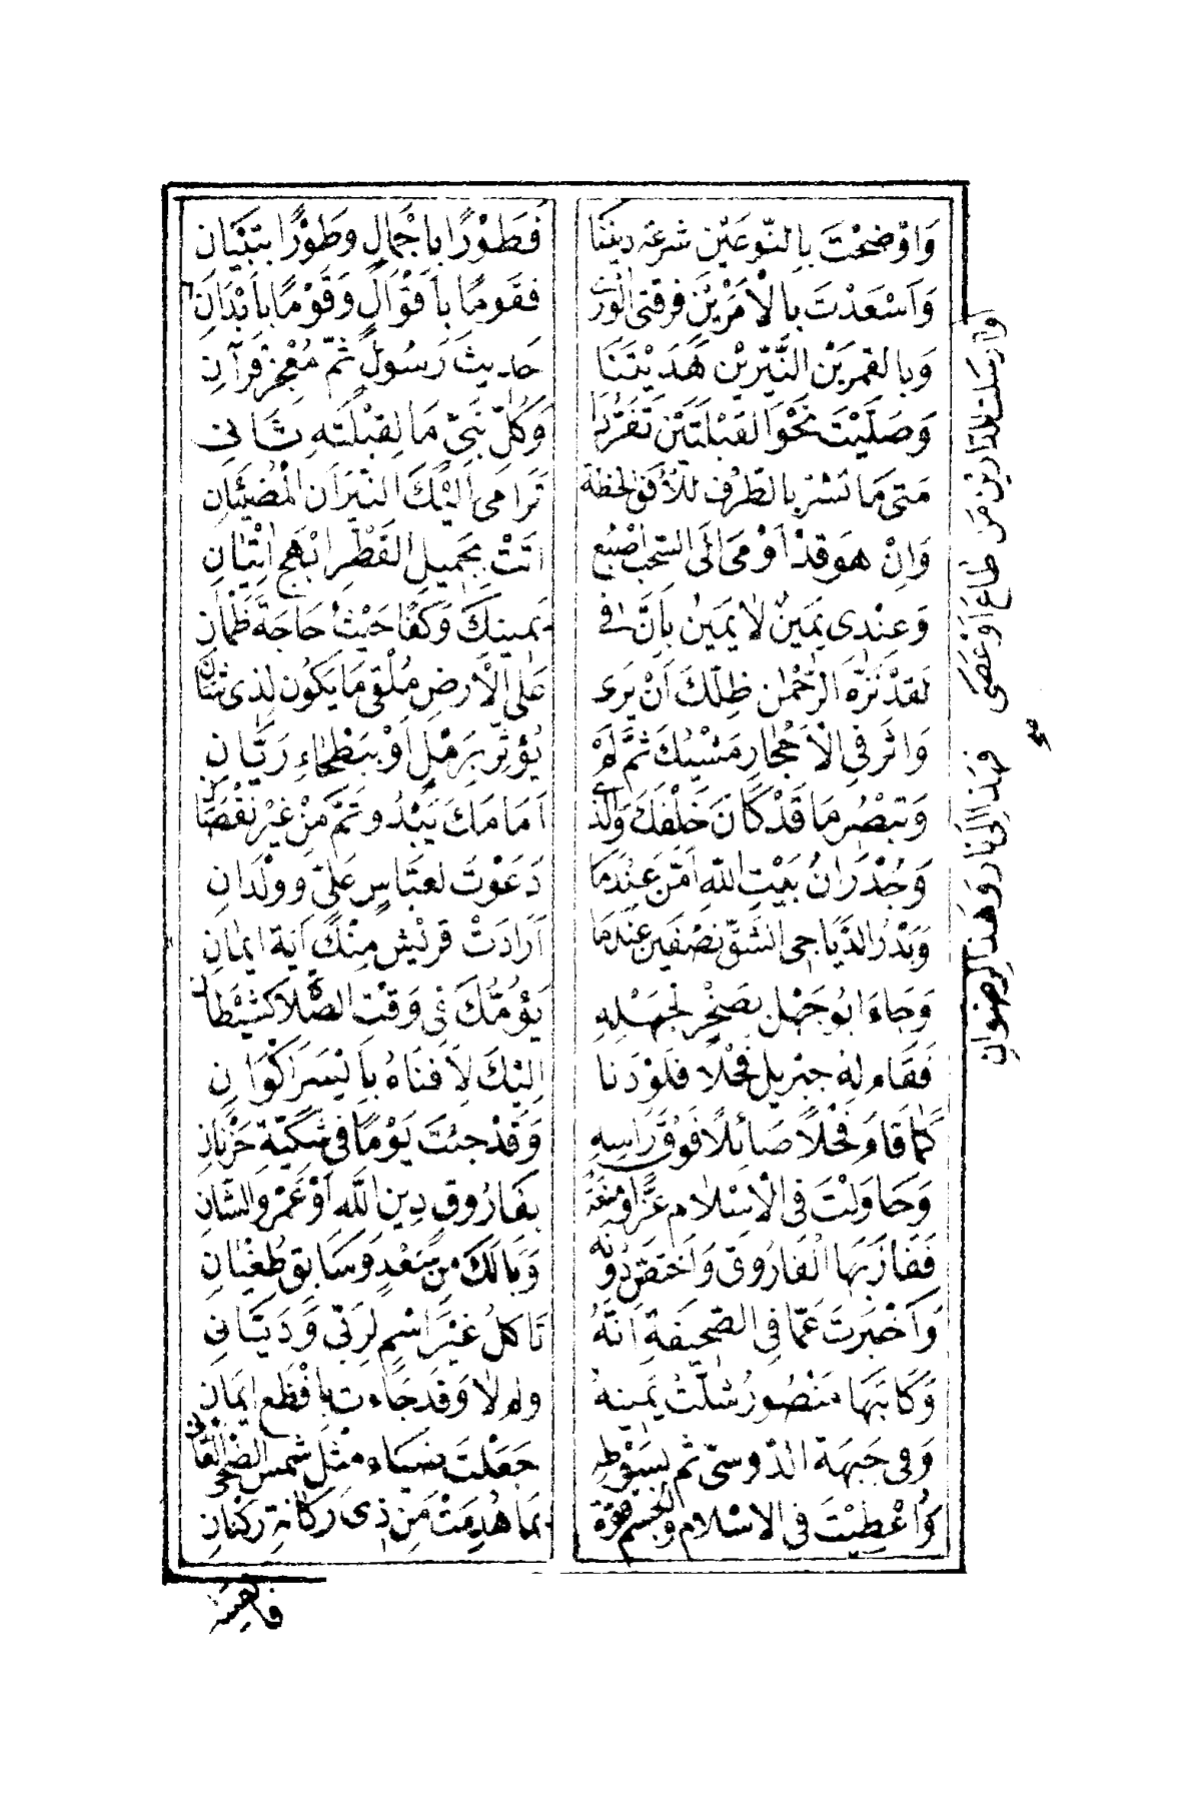 وَاَوْضَحْتَ بِالنَّوْعَيْنِ شِرْعَةَ دِينِنَا فَطَوْرًا بِإِجْمَالٍ وَطَوْرًا بِتِبْيَانِ
وَاَسْعَدْتَ بِالْاَمْرَيْنِ فرقتى الورى فَقَومًا بِاَقْوَالٍ وَقَوْمًا بِاَبْدَانِ
وَبِالقمرَيْنِ النَّيِّرَيْنِ هَدَيْتَنَا حَدِيثِ رَسُولٍ ثُمّ مُعْجِزِ قرآنِ
وَصَلَّيْتَ نَحْوَ القِبْلَتَيْنِ تَفَرُّدًا وَكُلّ نَبِىّ مَا لِقِبْلَتِهِ ثَانِى
مَتى مَا تُشِرْ بِالطَّرْفِ لِلْأُفقِ لحظة تَرَامى اِلَيْكَ النيّرَانِ المُضِيئَانِ
وَاِنْ هوَ قَدْ اَوْمَى الَى السّحبِ اصْبع اتَتْ بجَميلِ القَطْرِ ابْهَج اتْيَانِ
وَعِنْدِى يَمينٌ لَا يَمين بِاَنَّ فى يَمينِكَ وَكْفًا حَيْثُ حَاجَة ظَمْانِ
لَقَدْ نَزَّهَ الرَّحْمٰن ظِلّكَ اَنْ يَرى عَلى الْاَرضِ مُلْقى مَا يَكُون لِذى
وَاثَّر فِى الْاَحْجَارِ مَشْيُكَ ثمَّ لَمْ يُؤثِّر بِرَمْلٍ اَوْ بِبَطْحَاءِ رَيَّانِ
وَتبْصُر مَا قَدْ كَانَ خَلْفَكَ وَالذى اَمَامَكَ يَبْدُو ثَمَّ مِنْ غَيْرِ نُقْصَانِ
وَجُدْرَانُ بَيْتِ اللّهِ اَمّنَ عِنْدَمَا دَعَوْتَ لِعَبّاسٍ عَلِىٍّ وولْدَانِ
وَبَدْرُ الدَّيَاجِى انشَقّ نِصْفَين عِنْدَمَا اَرَادَتْ قريْش مِنْكَ آيَةَ ايمانِ
وَجَاءَ ابُو جَهْل بصَخْرٍ لجَهْلِهِ يَؤُمُّكَ فى وَقْتِ الصَّلَاةِ كَشَيْطَانِ
فَقَامَ لهُ جبْرِيل فَحْلًا فَلَوْ دَنَا اِلَيْكَ لَأَفنَاهُ بِاَيْسَر اَكْوَانِ
كَمَا قَامَ فَحْلًا صَائِلًا فَوْقَ رَاسِهِ وَقَدْ جِئتَ يَوْمًا فى شكيّة حَزْنَانِ
وَحَاوَلْتَ فِى الْاِسْلَامِ عَزًّا ومنْعَةً بِفَارُوقِ دِينِ اللّهِ اَوْ عَمْرٍو الشّانِ
فَفَازَ بِهَا الْفَارُوق وَاخْتصّ دُونهُ وَبَالكَ مِنْ سَعْدٍ وَسَابِق طُغْيَانِ
وَاَخْبَرتَ عَمّا فِى الصّحِيفَةِ اَنَّهُ تَاكل غَيْرَ اسْمٍ لِرَبّى وَدَيّانى
وَكَاتبهَا مَنْصُور شُلَّتْ يَمينهُ وَلِم لَا وَقَد جَاءَت بِاَفْظَع ايمانِ
وَفِى جَبهَةِ الدّوسىّ ثُم بِسَوْطِهِ جَعَلتَ ضِيَاء مثْل شَمْسِ الضّحَى القانى
وَاُعْطيْتَ فى الاسْلَام وَالجِسْم قوّة بمَا هُدِمَتْ مِن ذِى رَكَانةِ رُكْنَانِ
وارسَلتَ للدَّارينِ مَن طَاعَ اَوْ عَصَى فهَذا الى نار وَهَذا لِرضوانِ